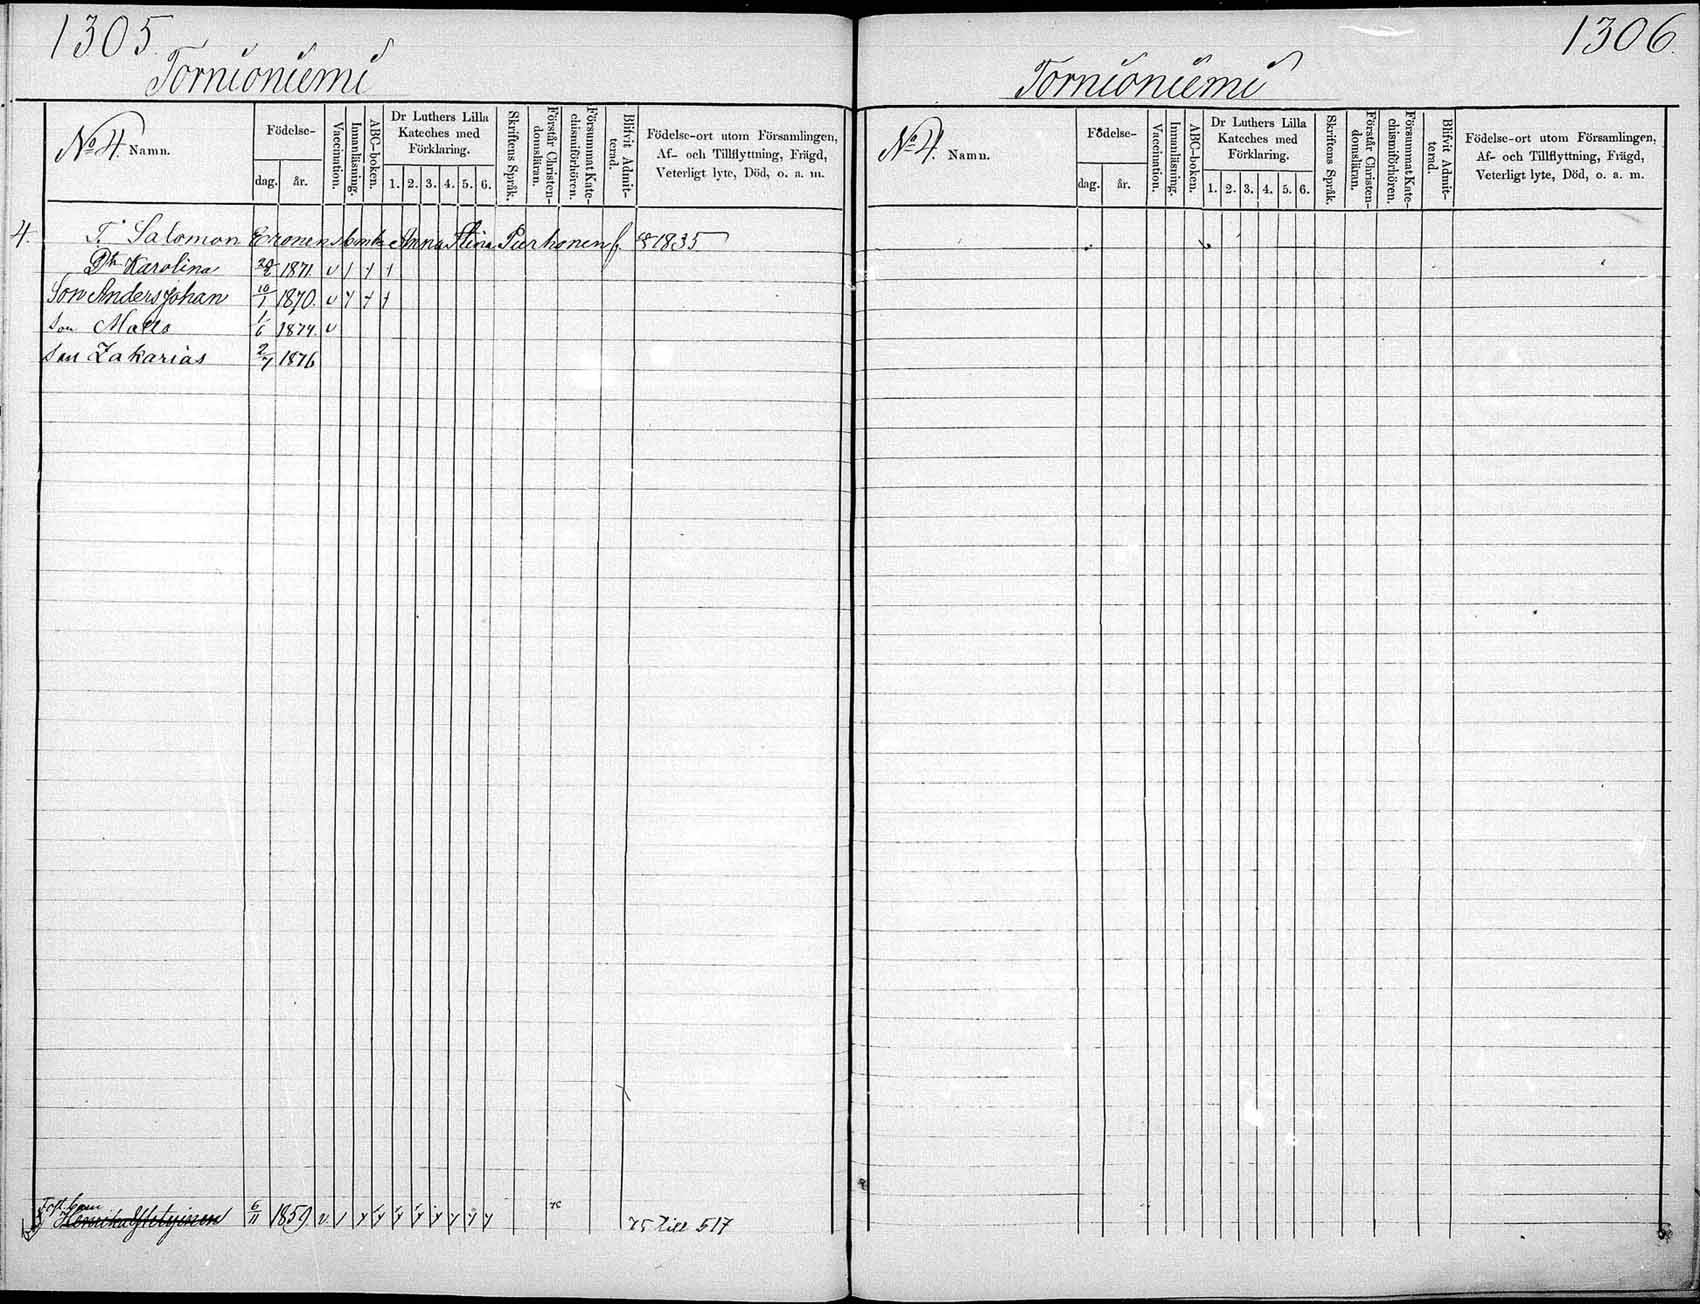 1305.
Tornioniemi
No 4. Namn.
Födelse-
dag. år.
Vaccination.
Innanläsning.
ABC-boken.
Dr Luthers Lilla
Kateches med
Förklaring.
1. 2. 3. 4. 5. 6.
Skriftens Språk.
Förstår Christen-
domsläran.
Försummat Kate-
chismiförhören.
Blifvit Admit-
terad.
Födelse-ort utom Församlingen,
Af- och Tillflyttning, Frägd,
Veterligt lyte, Död, o. a. m.
4. T. Salomon Eronens Enka Anna Stina Purhonen f. 1835
Dtr Karolina 1871. v
Son Anders Johan 10/1 1870. v
Son Matts 1/6 1874 v
Son Zakarias 2/7 1876
6/11 1859 v
75 till 517
1306.
Tornioniemi
No 4. Namn.
Födelse-
dag. år.
Vaccination.
Innanläsning.
ABC-boken.
Dr Luthers Lilla
Kateches med
Förklaring.
1. 2. 3. 4. 5. 6.
Skriftens Språk.
Förstår Christen-
domsläran.
Försummat Kate-
chismiförhören.
Blifvit Admit-
terad.
Födelse-ort utom Församlingen,
Af- och Tillflyttning, Frägd,
Veterligt lyte, Död, o. a. m.